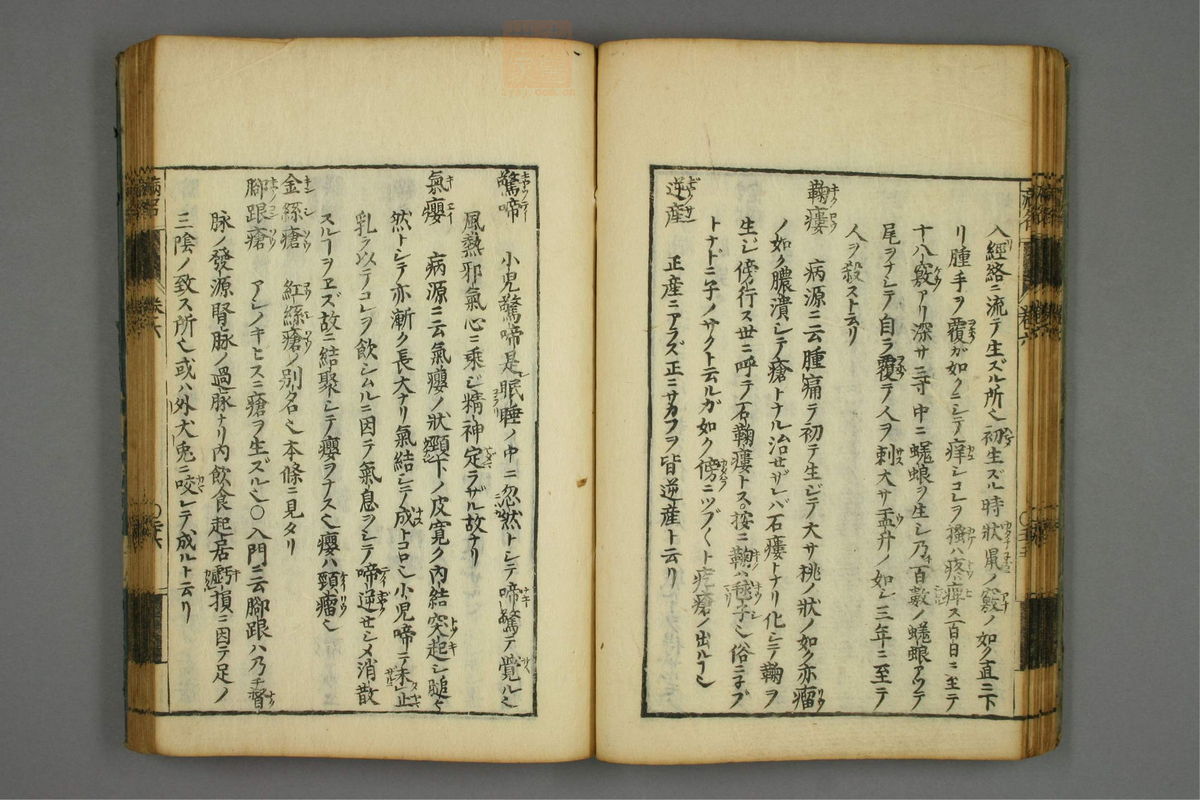 入經絡ニ流テ生ズル所也初生ズル時狀鼠ノ竅ノ如ク直ニ下
リ腫手ヲ覆ガ如クニシテ痒シコレヲ搔ハ疼痺ス百日ニ至テ
十八竅アリ深サ三寸中ニ蟯蜋ヲ生シ乃百數ノ蟯蜋アツテ
尾ヲナシテ自ラ覆テ人ヲ刺大サ盂升ノ如シ三年ニ至テ
人ヲ殺スト云リ
鞠瘻 病源ニ云腫痛テ初テ生ジテ大サ桃ノ狀ノ如ク亦瘤
ノ如ク膿潰シテ瘡トナル治セザレバ石瘻トナリ化シテ鞠ヲ
生ジ傍行ス世ニ呼テ石鞠瘻トス按ニ鞠ハ毬子也俗ニ子ブ
トナドニ子ノサクト云ルガ如ク傍ニツブ〱ト疙瘡ノ出ル也
逆産 正産ニアラズ正ニサカフヲ皆逆産ト云リ
驚啼 小兒驚啼是眠睡ノ中ニ忽然トシテ啼驚テ覺ル也
風熱邪氣心ニ乘ジ精神定ラザル故ナリ
氣癭 病源ニ云氣癭ノ狀頸下ノ皮寛ク内結突起シ膇々
然トシテ亦漸ク長大ナリ氣結シテ成トコロ也小兒啼テ未止
乳ヲ以テコレヲ飮シムルニ因テ氣息ヲシテ啼逆セシメ消散
スルヿヲヱズ故ニ結聚シテ癭ヲナス也癭ハ頸瘤也
金絲瘡 紅絲瘡ノ別名也本條ニ見タリ
腳跟瘡 アシノキヒスニ瘡ヲ生ズル也〇入門ニ云腳跟ハ乃チ督
脉ノ發源腎脉ノ過脉ナリ内飮食起居虧損ニ因テ足ノ
三陰ノ致ス所也或ハ外犬兎ニ咬レテ成ルト云リ